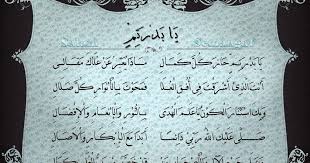 يَا بَدْرَ تِمٍّ
يَا بَدْرَ تِمٍّ حَازَ كُلَّ كَمَالِ مَاذَا يُعَبِّرُ عَنْ عُلَاكَ مَقَالِي
أَنْتَ الَّذِي أَشْرَقْتَ فِي أُفُقِ الْعُلَا فَمَحَوْتَ بِالْأَنْوَارِ كُلَّ ضَلَالِ
وَبِكَ اسْتَنَارَ الْكَوْنُ يَا عَلَمَ الْهُدَى بِالنُّورِ وَالْإِنْعَامِ وَالْإِفْضَالِ
صَلَّى عَلَيْكَ اللهُ رَبِّي دَائِمًا أَبَدًا مَعَ الْإِبْكَارِ وَالْآصَالِ